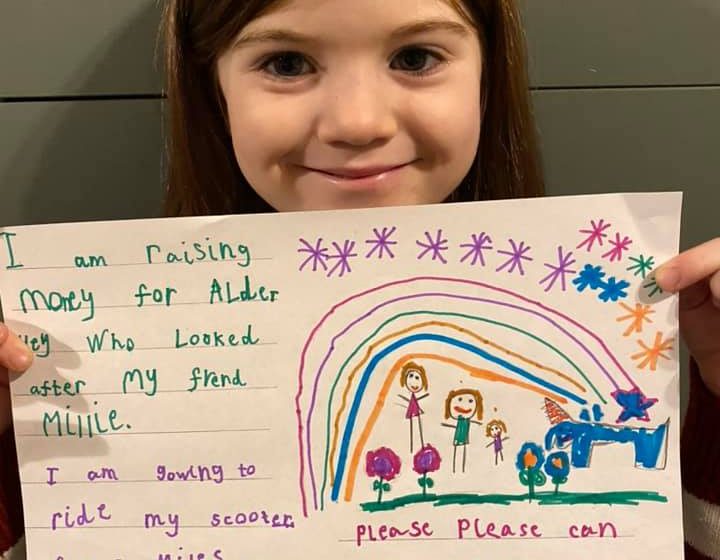 I am raising
money for Alder
Hey Who Looked
after my frend
Millie.
I am gowing to
ride my scooter
miles
please please can